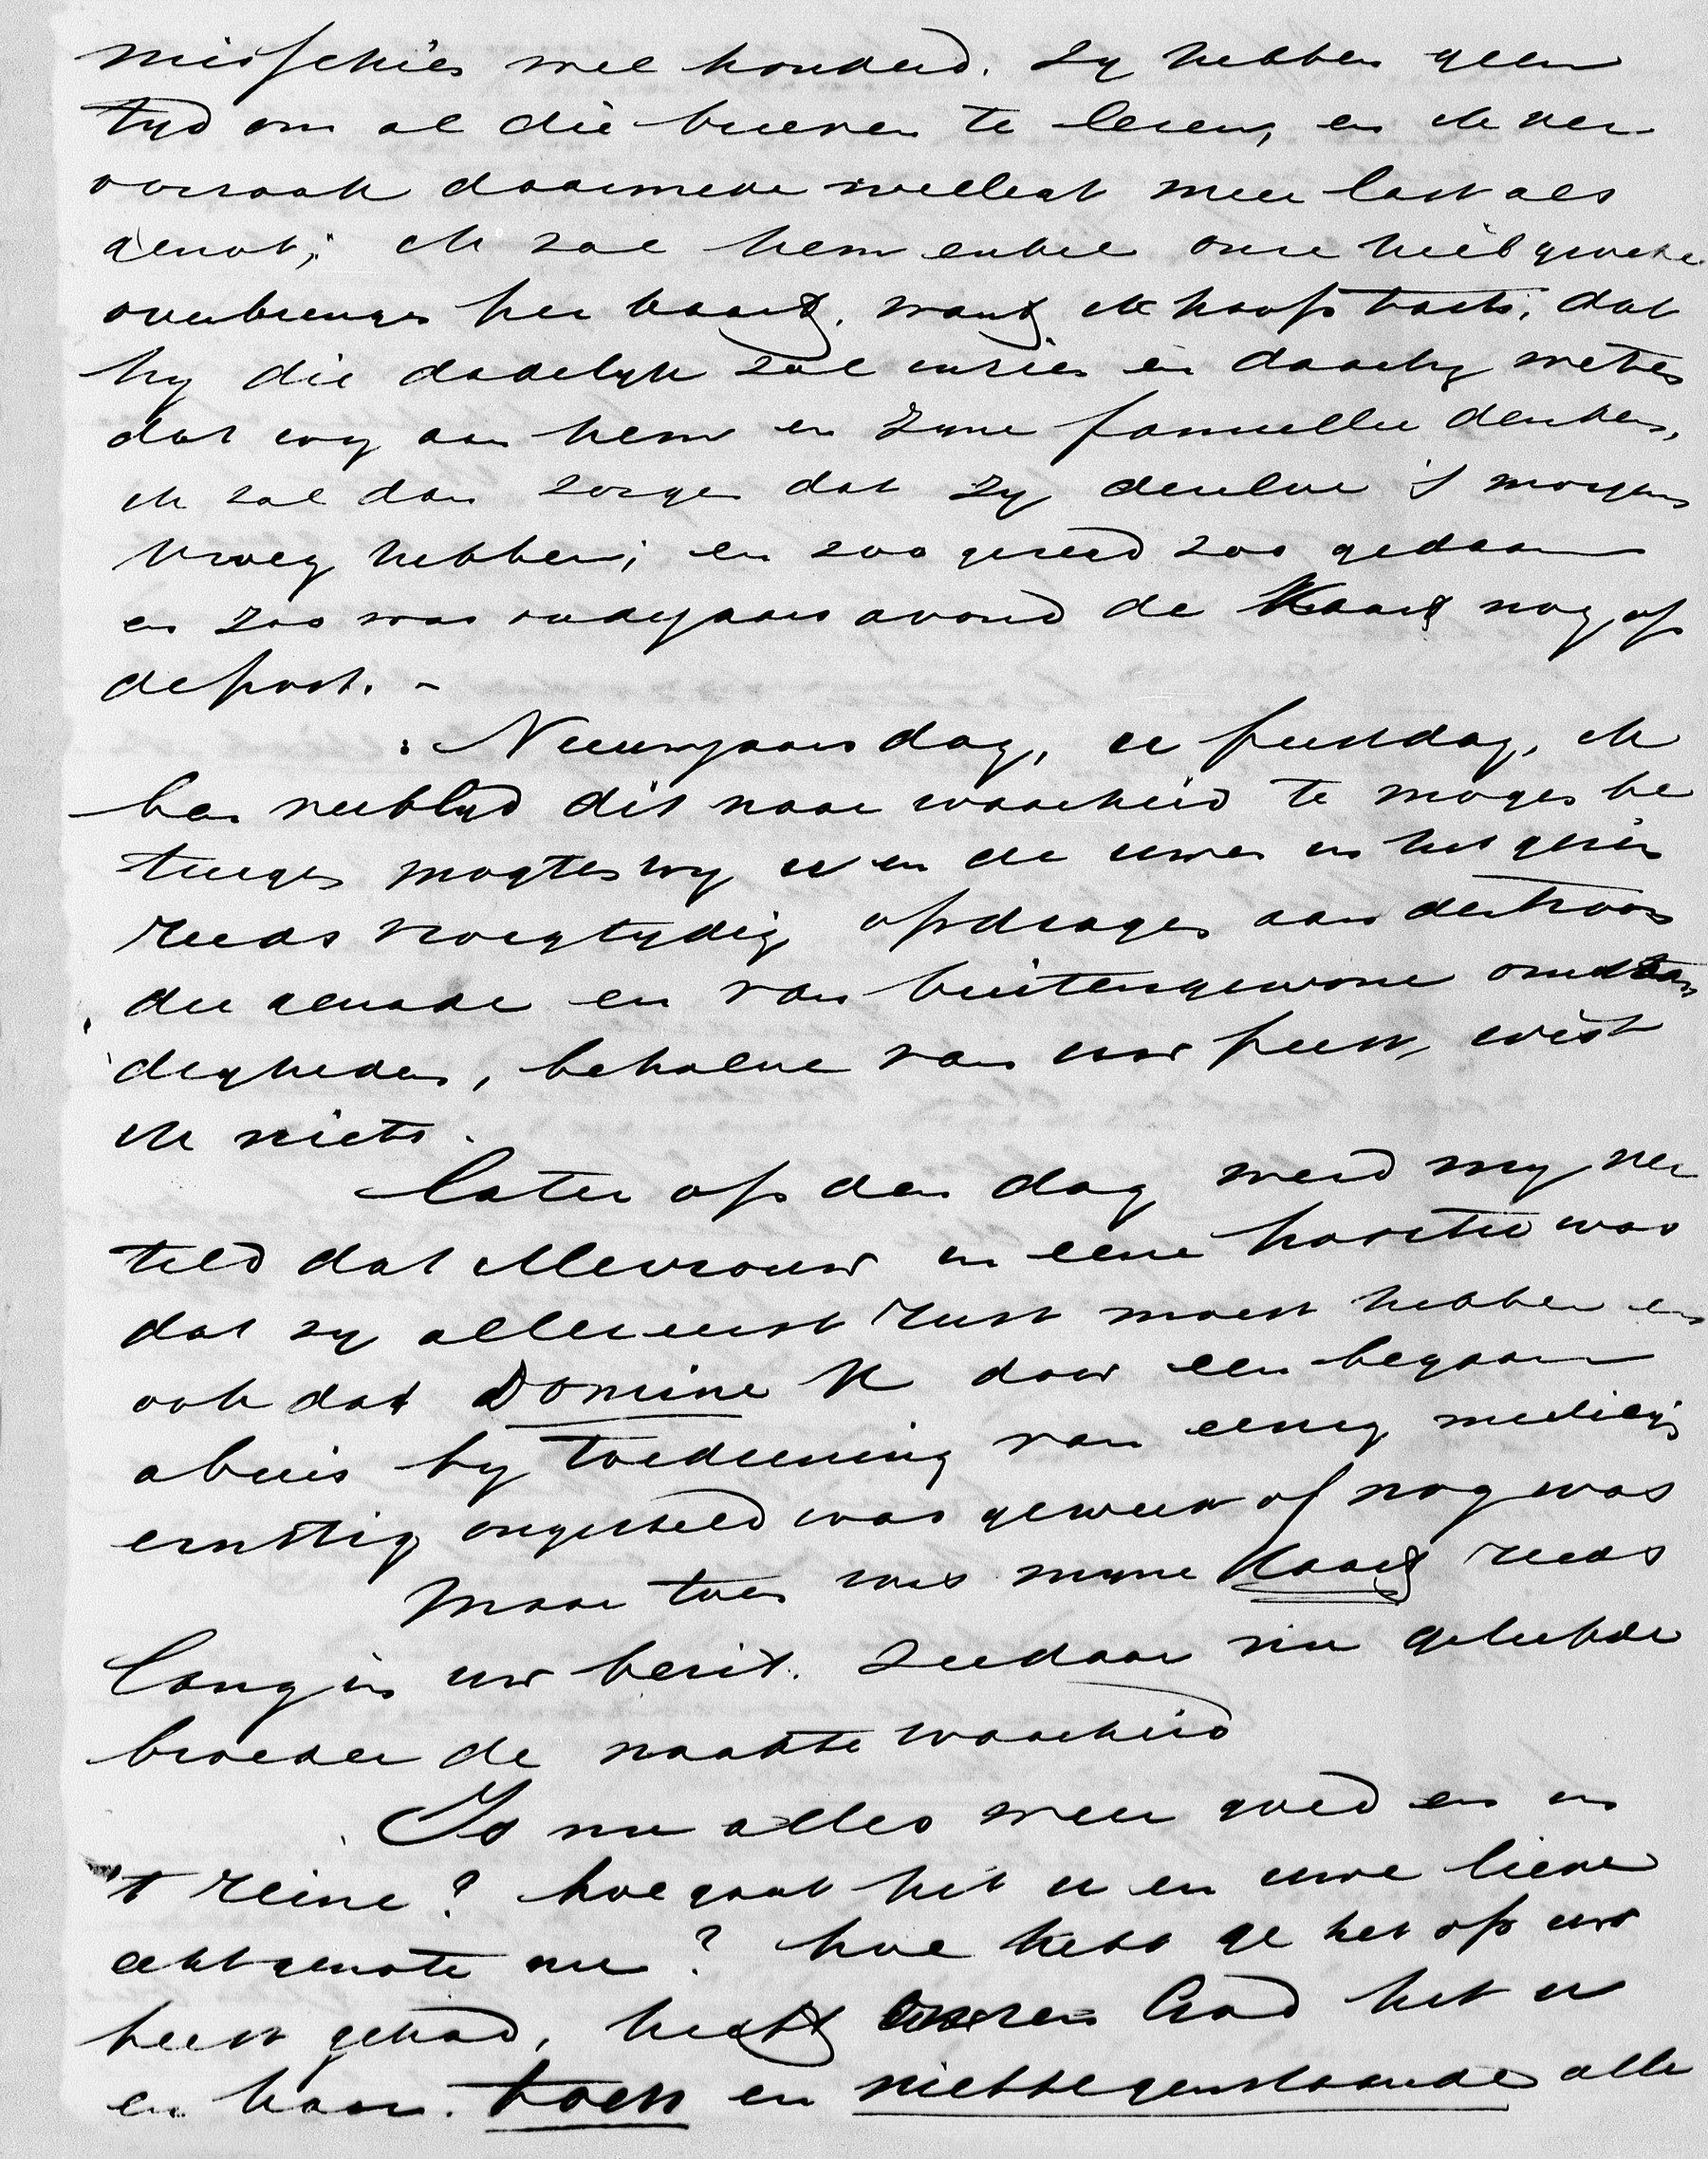 misschien wel honderd. Zy hebben geen
tyd om al die brieven te lezen, en ik ver
oorzaak daarmede wellicht meer last als
genot; ik zal hem enkel onze heilgroete
overbrengen per kaart, want ik hoop toch, dat
hy die dadelyk zal inzien en daarby weten
dat wy aan hem en zyne famielie denken,
ik zal dan zorgen dat zy dezelve 's morgens
vroeg hebben; en zoo gezegd zoo gedaan
en zoo was oudejaars avond de Kaart nog op
de post. -
Nieuwjaarsdag, uw feestdag, ik
ben recht blyd dit naar waarheid te mogen be
tuigen mogten wy u en de uwen in het gezin
reeds vroegtydig opdragen aan den troon
der genade en van buitengewone omstan
digheden, behalve van uw feest, wist
ik niets.
later op den dag werd my ver
teld dat Mevrouw in eene positie was
dat zy allereerst rust moest hebben en
ook dat Domine K door een begaan
abuis by toediening van eenig medicijn
ernstig ongesteld was geweest of nog was
Maar toen was myne Kaart reeds
lang in uw bezit. Ziedaar nu geliefde
broeder de naakte waarheid
Is nu alles weer goed en in
't reine? hoe gaat het u en uwe lieve
echtgenote nu? hoe hebt ge het op uw
feest gehad, heeft onzen God het u
en haar. toen en niettegenstaande alle